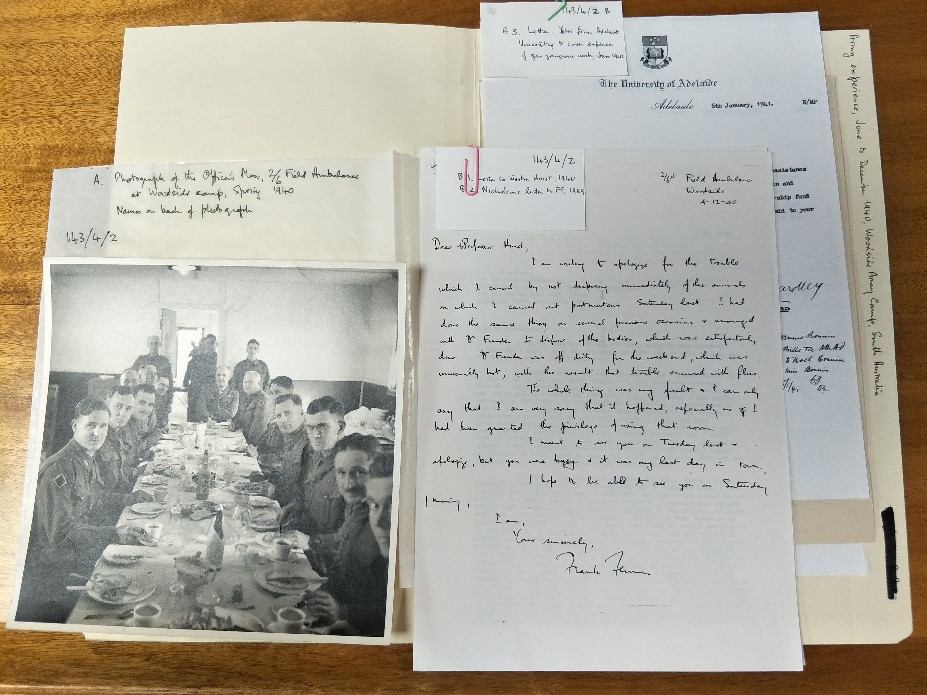 143/4/2 B
B 3. Letter from Adelaide
University to cover expenses
of gas gangrene work, Jan 1941
The University of Adelaide
Adelaide 6th January, 1941.
143/4/2
B 1. to Hurst, 1940
B 2. letter to FF,
A. Photograph of the Officers Mess, 2/6 Field Ambulance
at Woodside Camp, Spring 1940
Names on back of photograph
143/4/2
Field Ambulance
Woodside
4-12-40
Dear Professor Hurst,
I am writing to apologize for the trouble
which I caused by not disposing immediately of the animals
on which I carried out postmortems Saturday last. I had
done the same thing on several previous occasions & arranged
with Dr Funder to dispose of the bodies, which was satisfactorily
done. Dr Funder was off duty for the weekend, which was
, with the result that trouble occurred with flies.
The whole thing was my fault & I can only
say that I am very sorry that it happened, especially as I
had been granted the privilege of using that room.
I went to see you on Tuesday last &
apologize, but you were busy & it was my last day in town,
I hope to be able to see you on Saturday
morning,
I am,
Yours sincerely,
Frank Fenner
Army experience, June to December 1940, Woodside Army Camp, South Australia